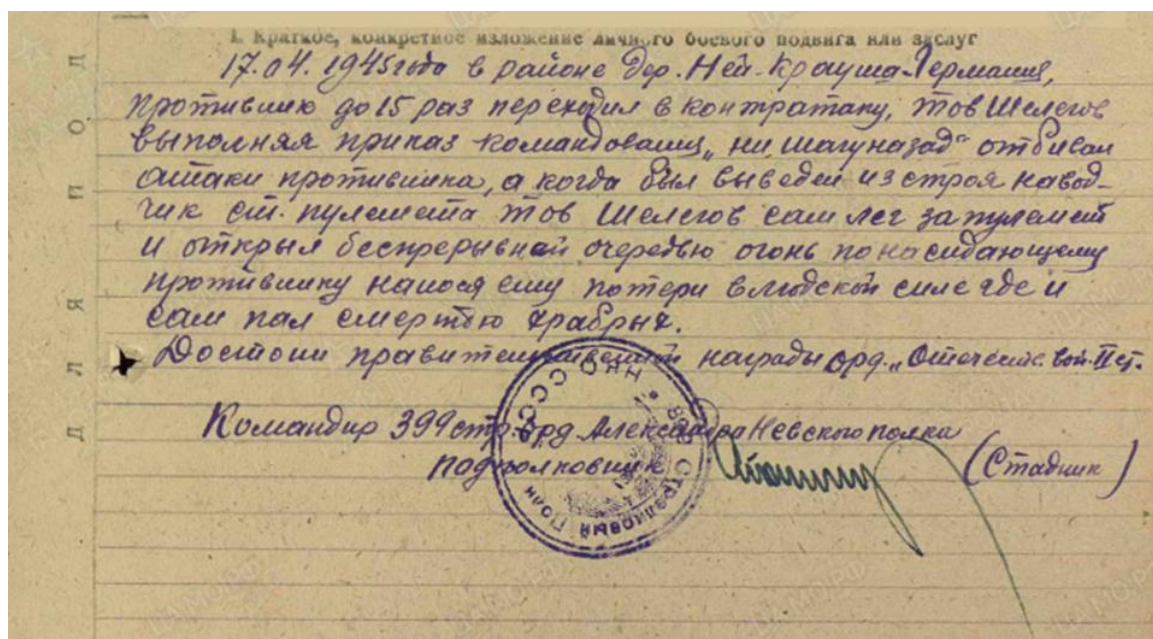 I. Краткое, конкретное изложение личного боевого подвига или заслуг
17.04.1945 года в районе дер. Ней-Крауша-Германия,
противник до 15 раз переходил в контратаку, тов Шелегов
выполняя приказ командования „ни шагу назад" отбивал
атаки противника, а когда был выведен из строя навод-
чик ст. пулемета тов Шелегов сам лег за пулемет
и открыл беспрерывной очередью огонь по наседающему
противнику нанося ему потери в людской силе где и
сам пал смертью храбрых.
Достоин правительственной награды орд. „Отечеств. вой. II ст.
Командир 399 стр. орд Александра Невского полка
подполковник
(Стадник)
НКО СССР
Стрелковый Полк
ДЛЯ ПОД
ЦАМО.РФ